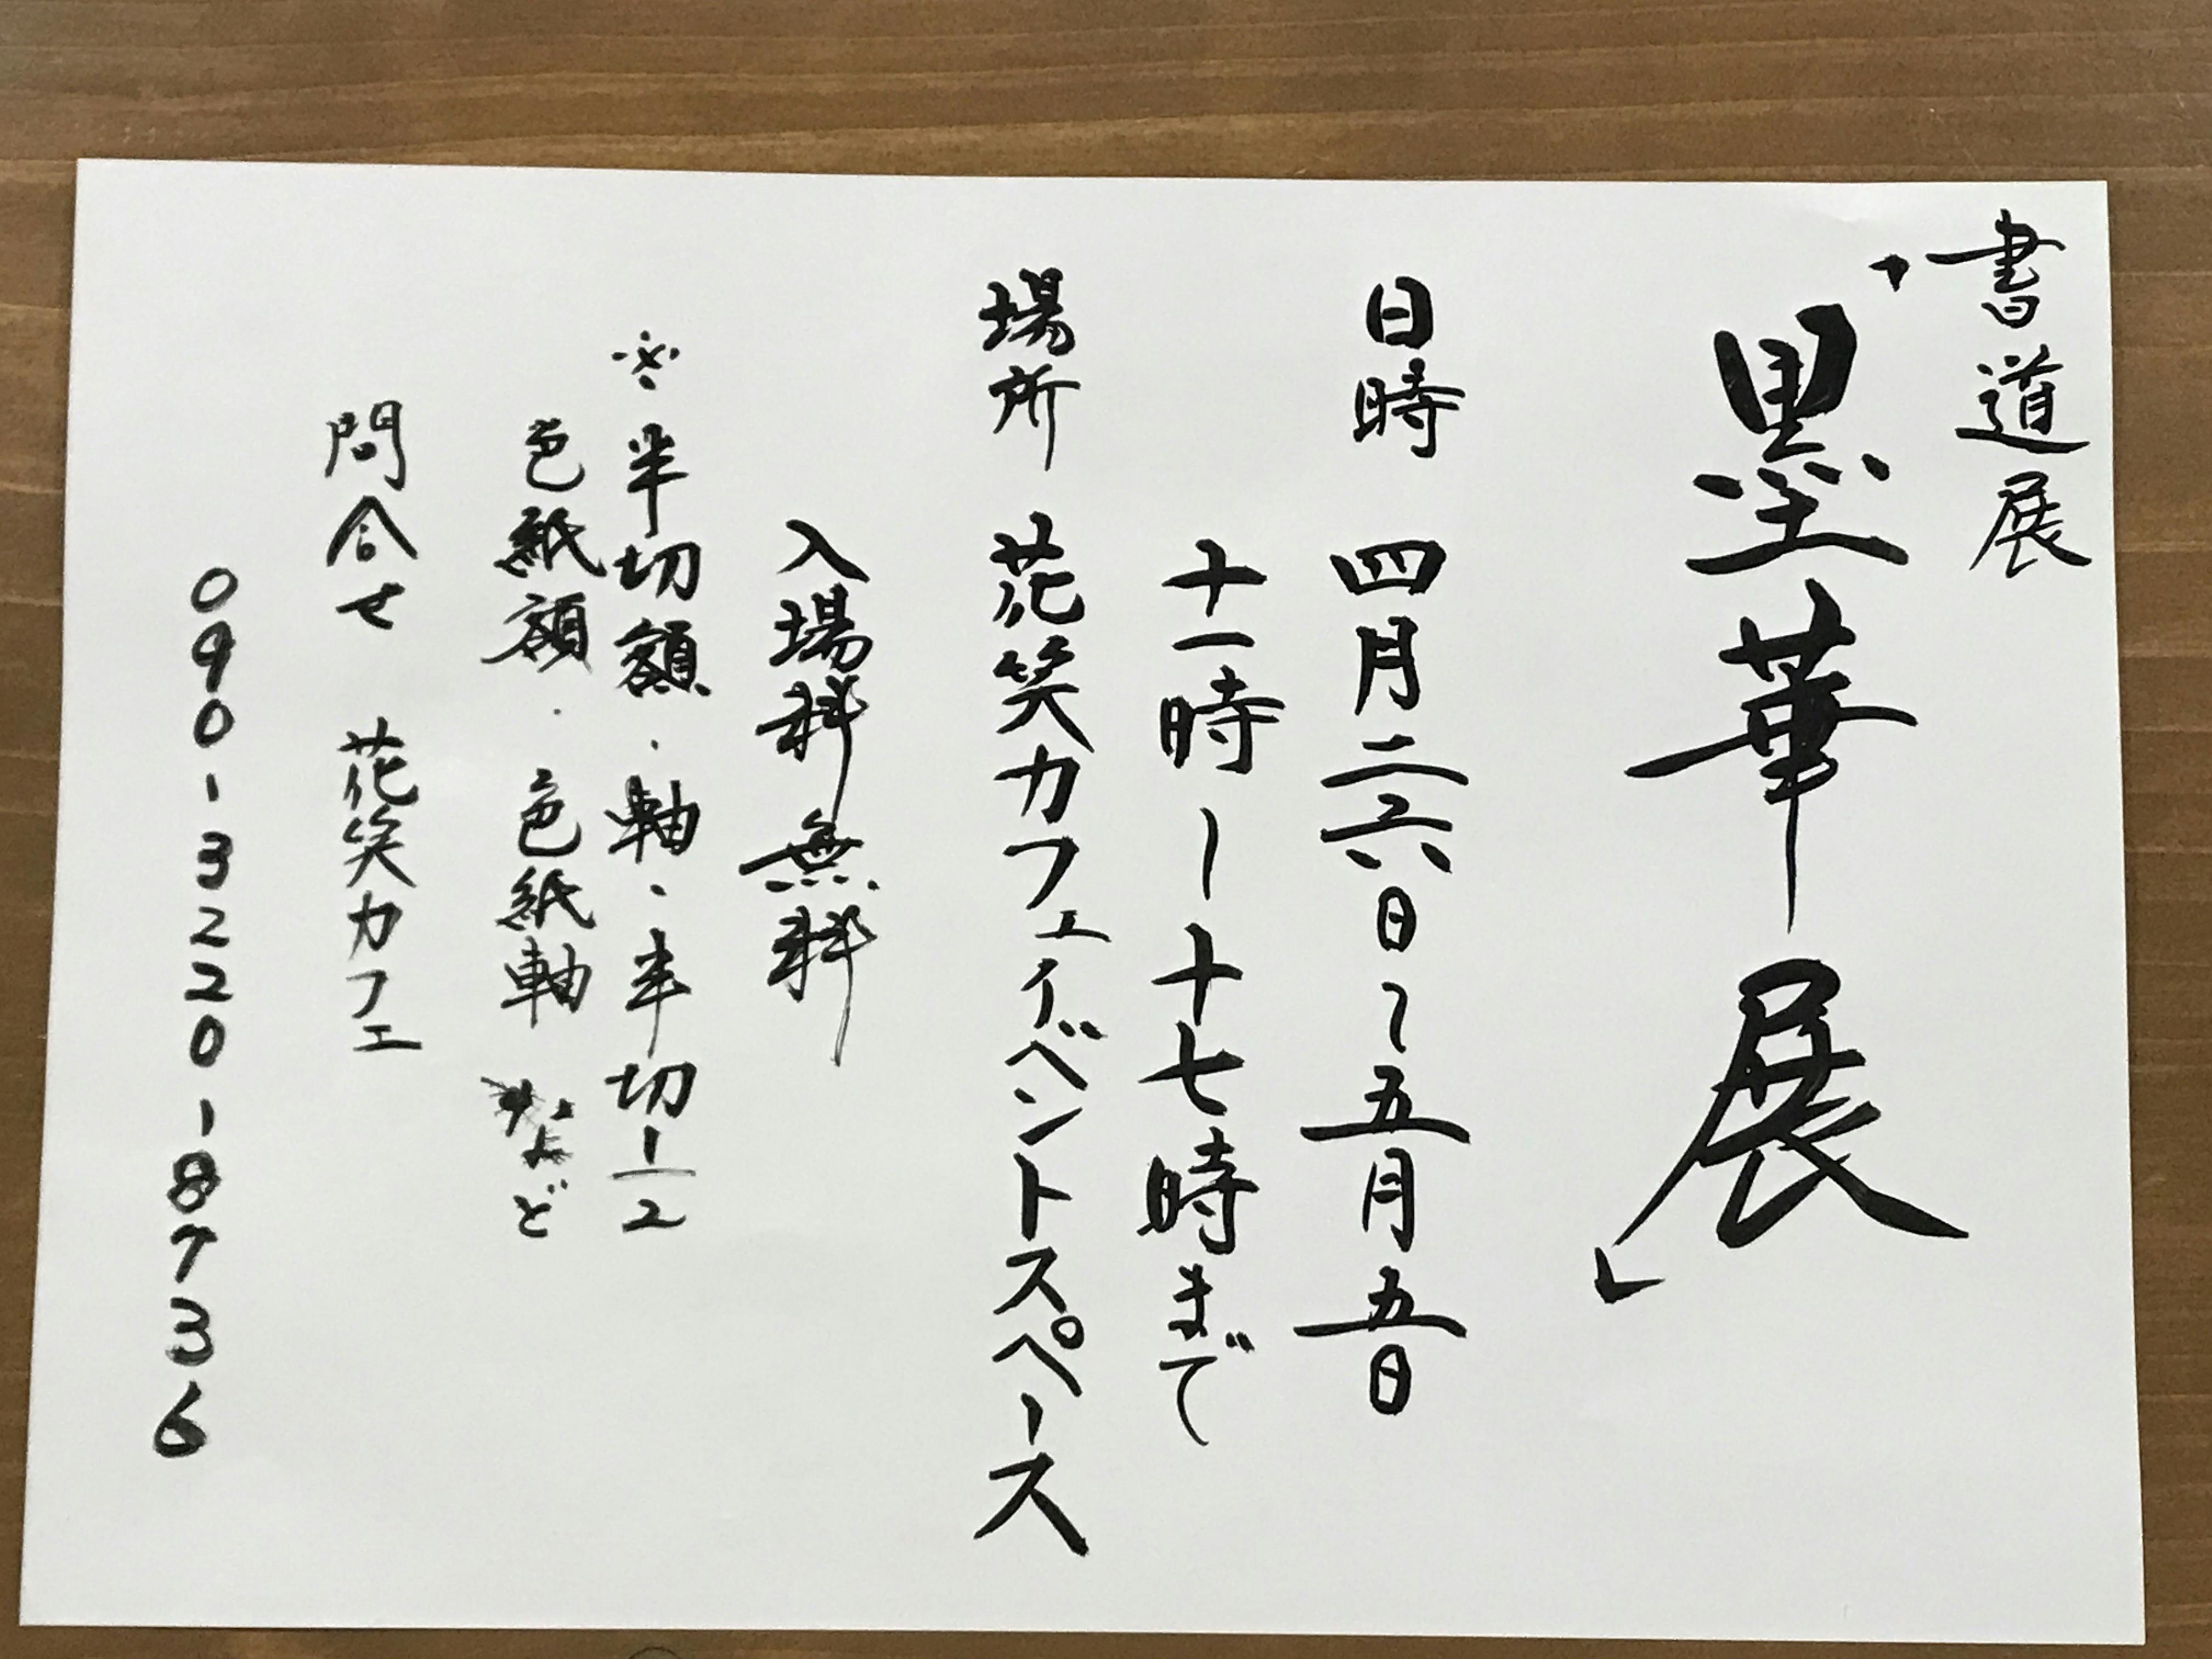 書道展
「墨華展」
日時 四月二六日～五月五日
十一時ー十七時まで
場所 花笑カフェイベントスペース
入場料無料
※半切額・軸・半切1/2
色紙額・色紙軸など
問合せ 花笑カフェ
090-3220-8736